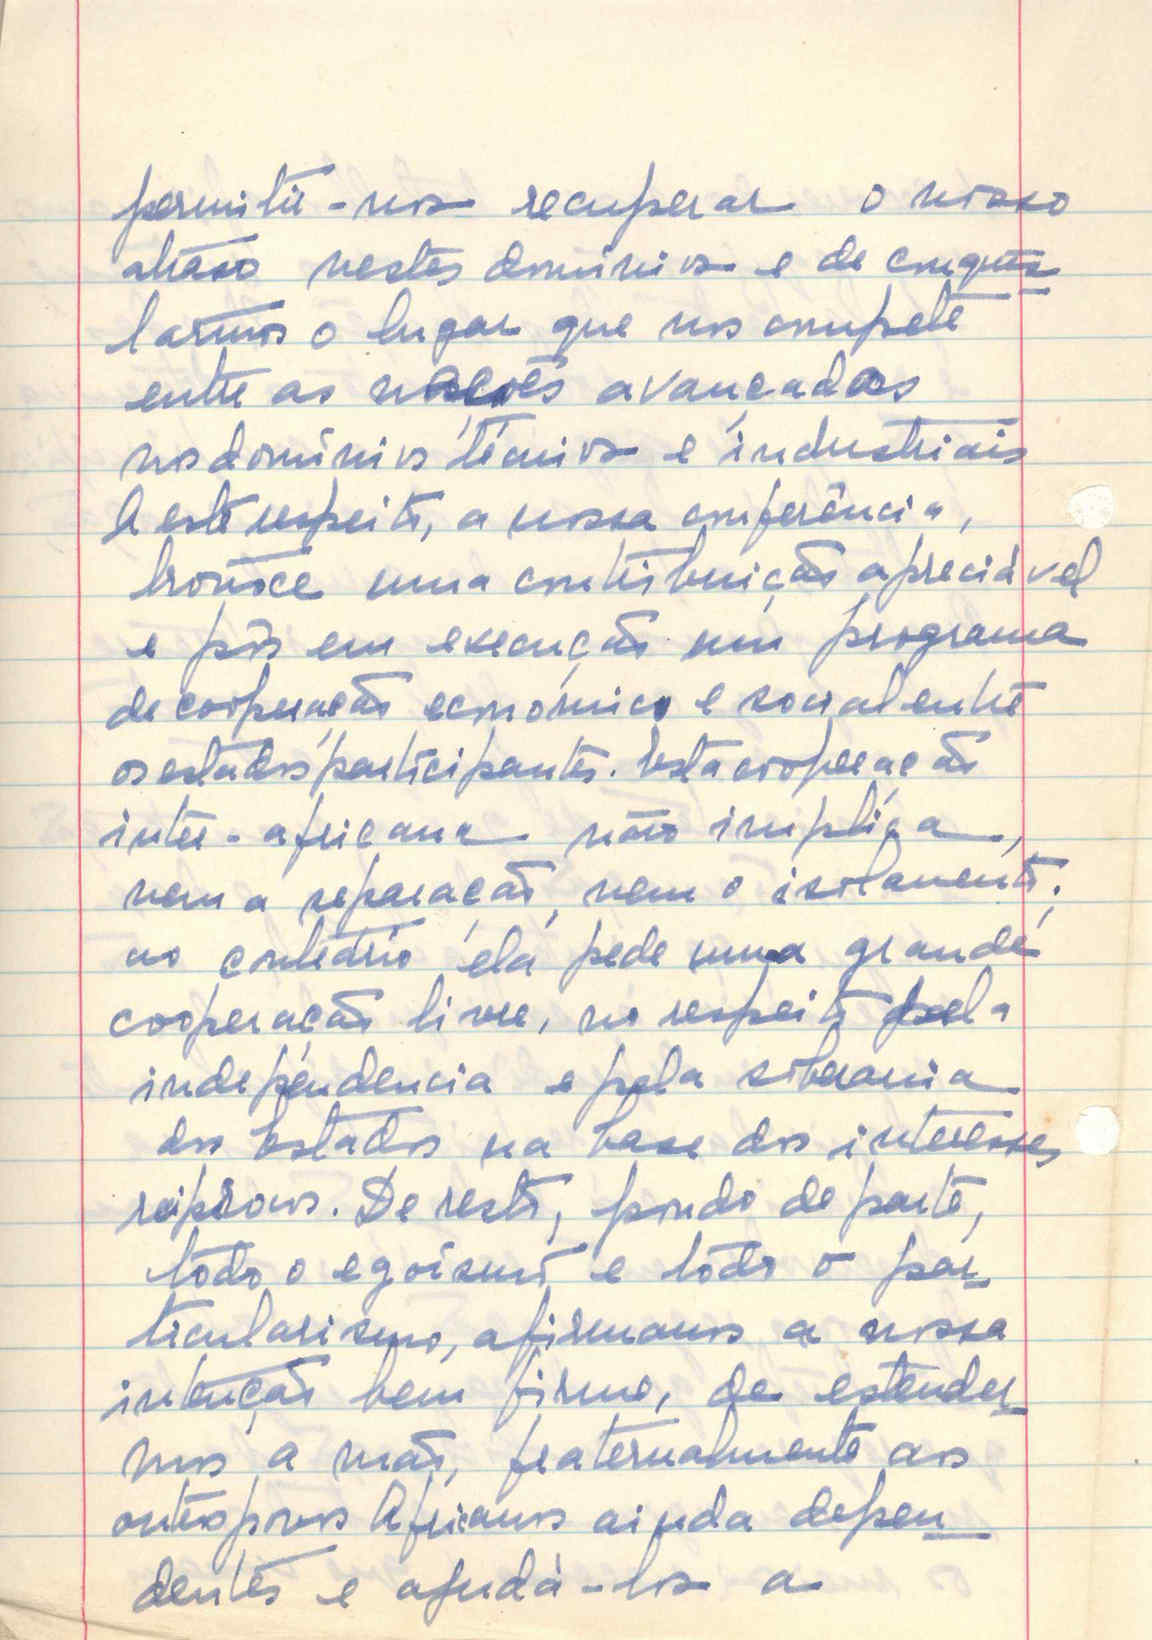 permitir-nos recuperar o nosso
atraso nestes domínios e de conquis-
tarmos o lugar que nos compete
entre as nações avançadas
nos domínios técnicos e industriais
A este respeito, a nossa conferência,
trouxe uma contribuição apreciável
e pôs em execução um programa
de cooperação económico e social entre
os estados participantes. Esta cooperação
inter-africana não implica,
nem a separação, nem o isolamento;
ao contrário ela pede uma grande
cooperação livre, no respeito pela
independencia e pela soberania
dos Estados na base dos interesses
recíprocos. De resto, pondo de parte,
todo o egoísmo e todo o par-
ticularismo, afirmamos a nossa
intenção bem firme, de estender-
mos a mão, fraternalmente aos
outros povos Africanos ainda depen-
dentes e ajudá-los a